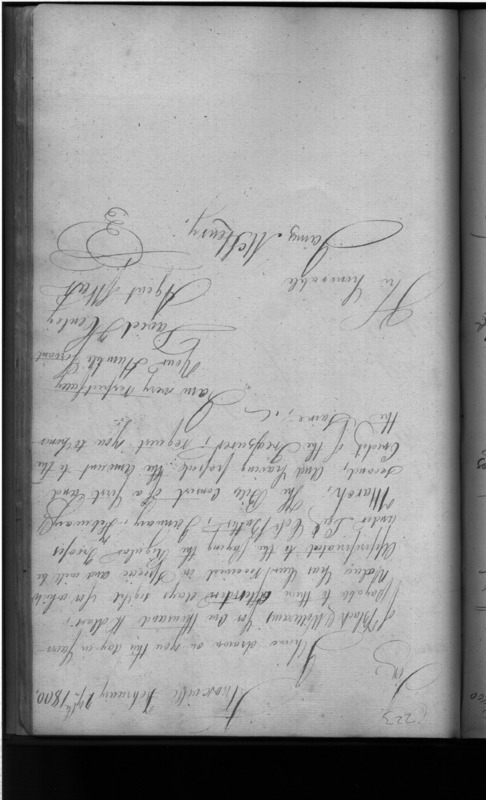 223
Knoxville February 1800.
Sir
I have drawn on you this day in favor
of Black & Williams for One thousand Dollars,
payable to them days sight for which
Value has been received in Specie and will be
appropriated to the paying the Regular Troops
under January & February
March, The Bills consist of a first and
Second, And having passed the amount to the
Credit of the Treasurer, request you to honor
the Same, &c
I am very respectfully
Your Humble Servant
David Henley
Agent War
The honorable
James McHenry.